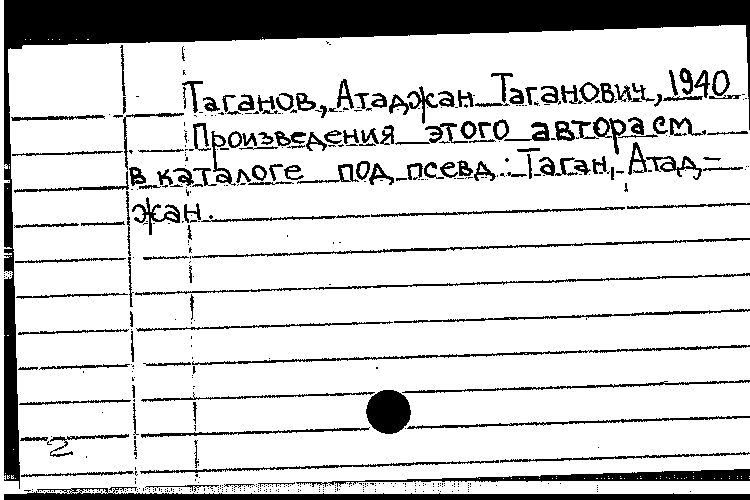 Таганов, Атаджан Таганович, 1940
Произведения этого автора см.
в каталоге под псевд.: Таган, Атад-
жан.
2